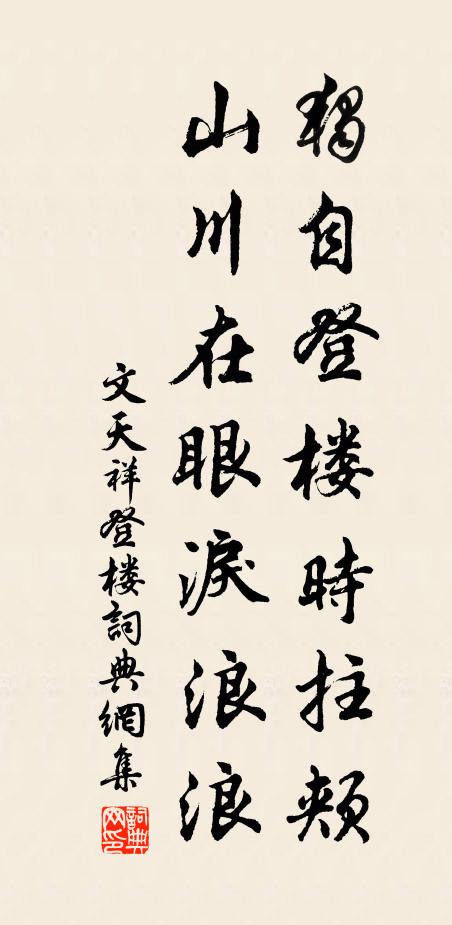 獨自登楼時拄頰
山川在眼淚浪浪
文天祥登楼詞典網集
詞典网印